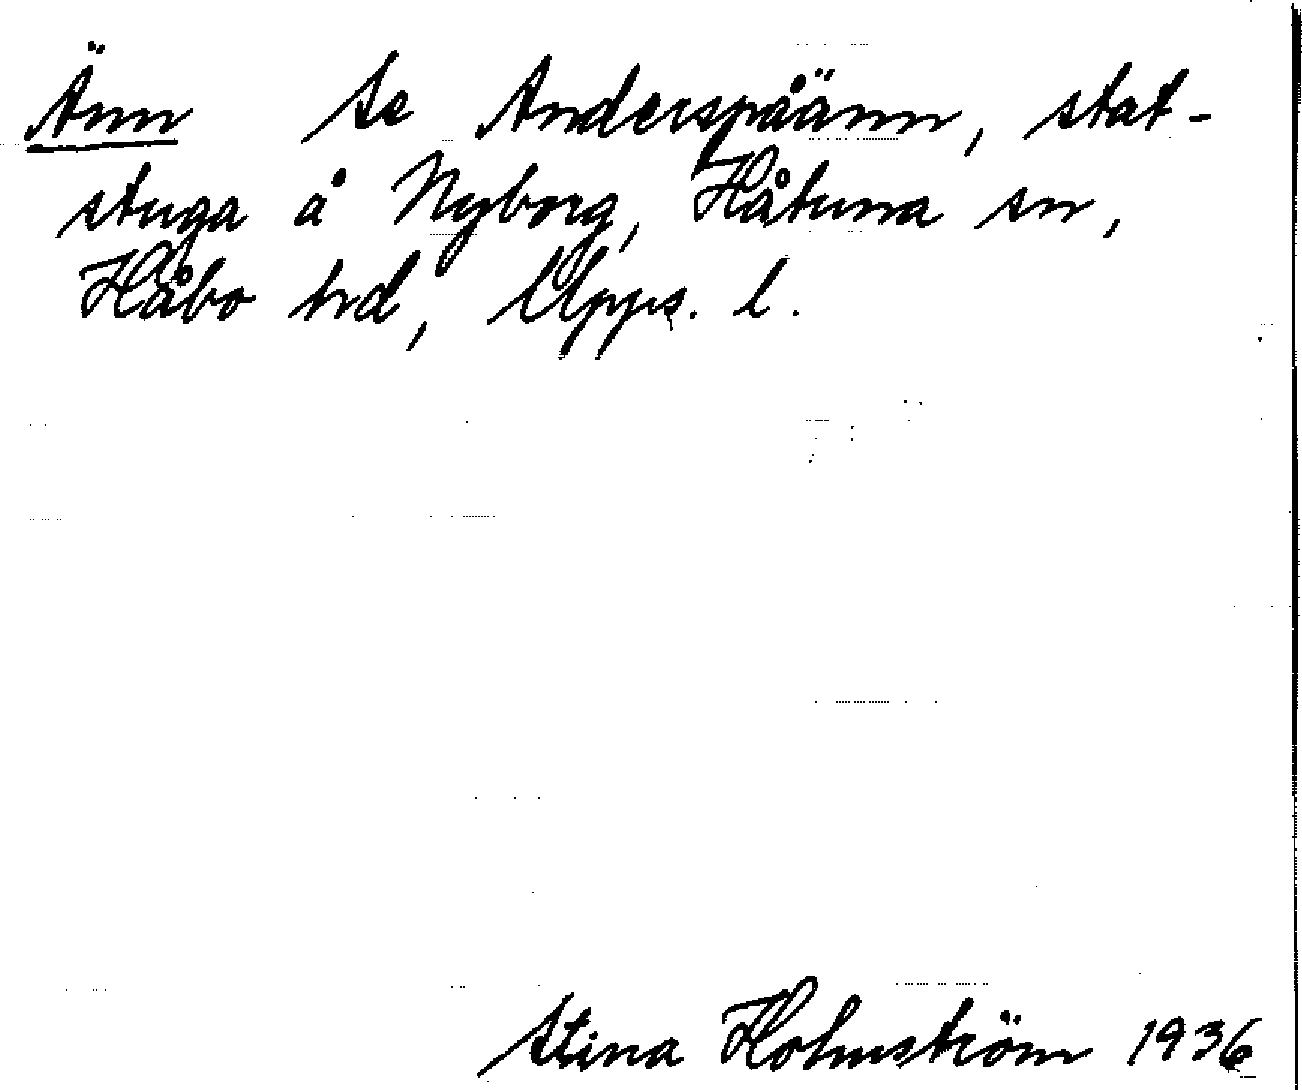 Änn Se Anderspåänn, stat-
stuga å Nyborg, Håtuna sn,
Håbo hd, Upps. l.
Stina Holmström 1936